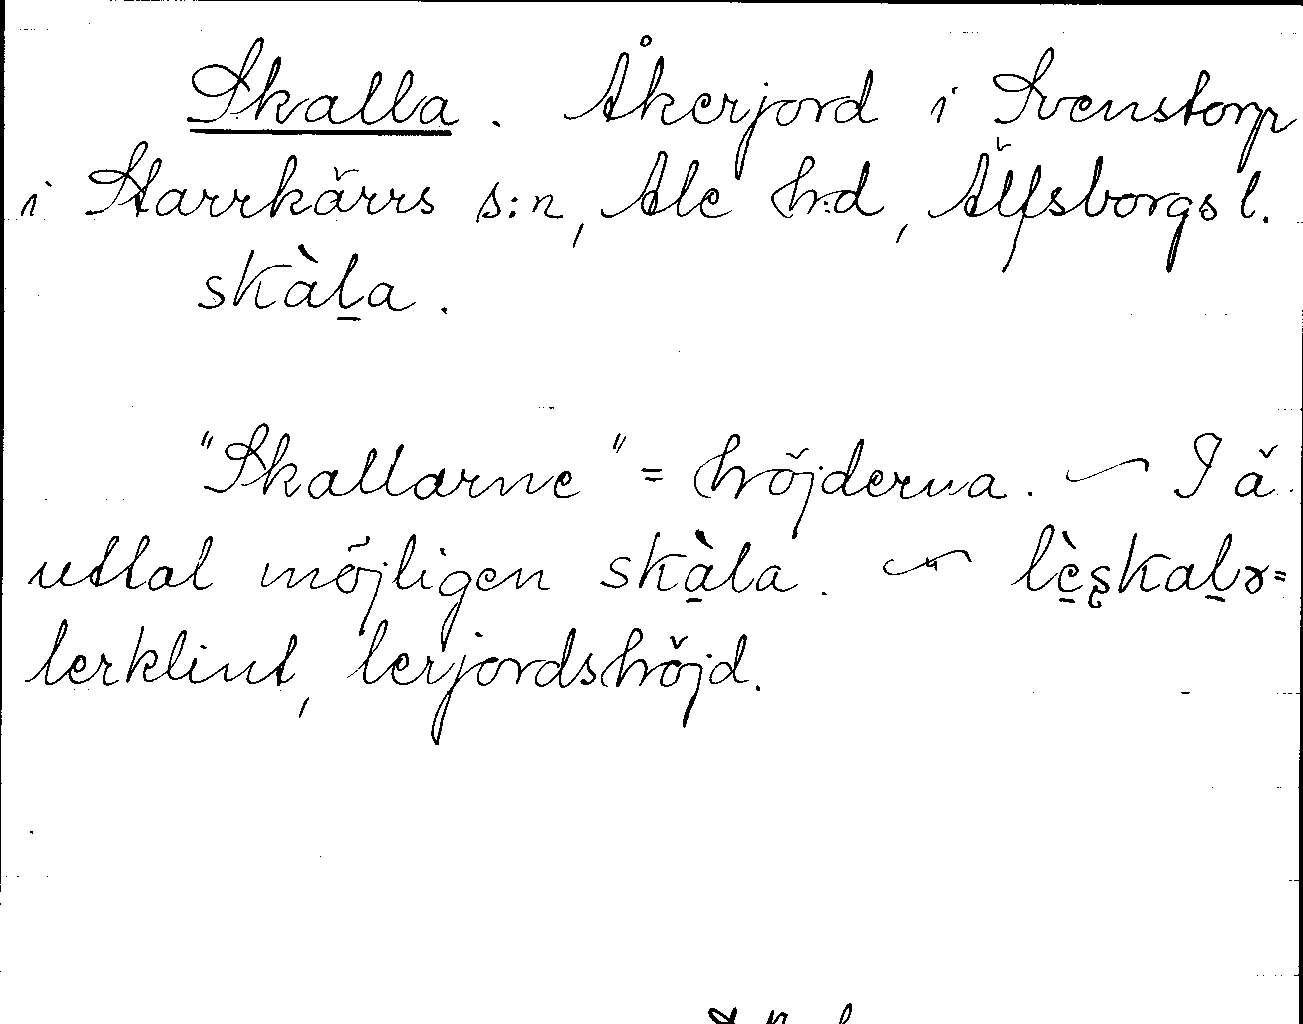 Skalla. Åkerjord i Svenstorp
i Starrkärrs s:n, Ale h:d, Älfsborgs l.
skàl̠a.
"Skallarne" = höjderna. ~ I ä.
uttal möjligen skà̠la. ~ lè̠s̨kal̠ɤ =
lerklint, lerjordshöjd.